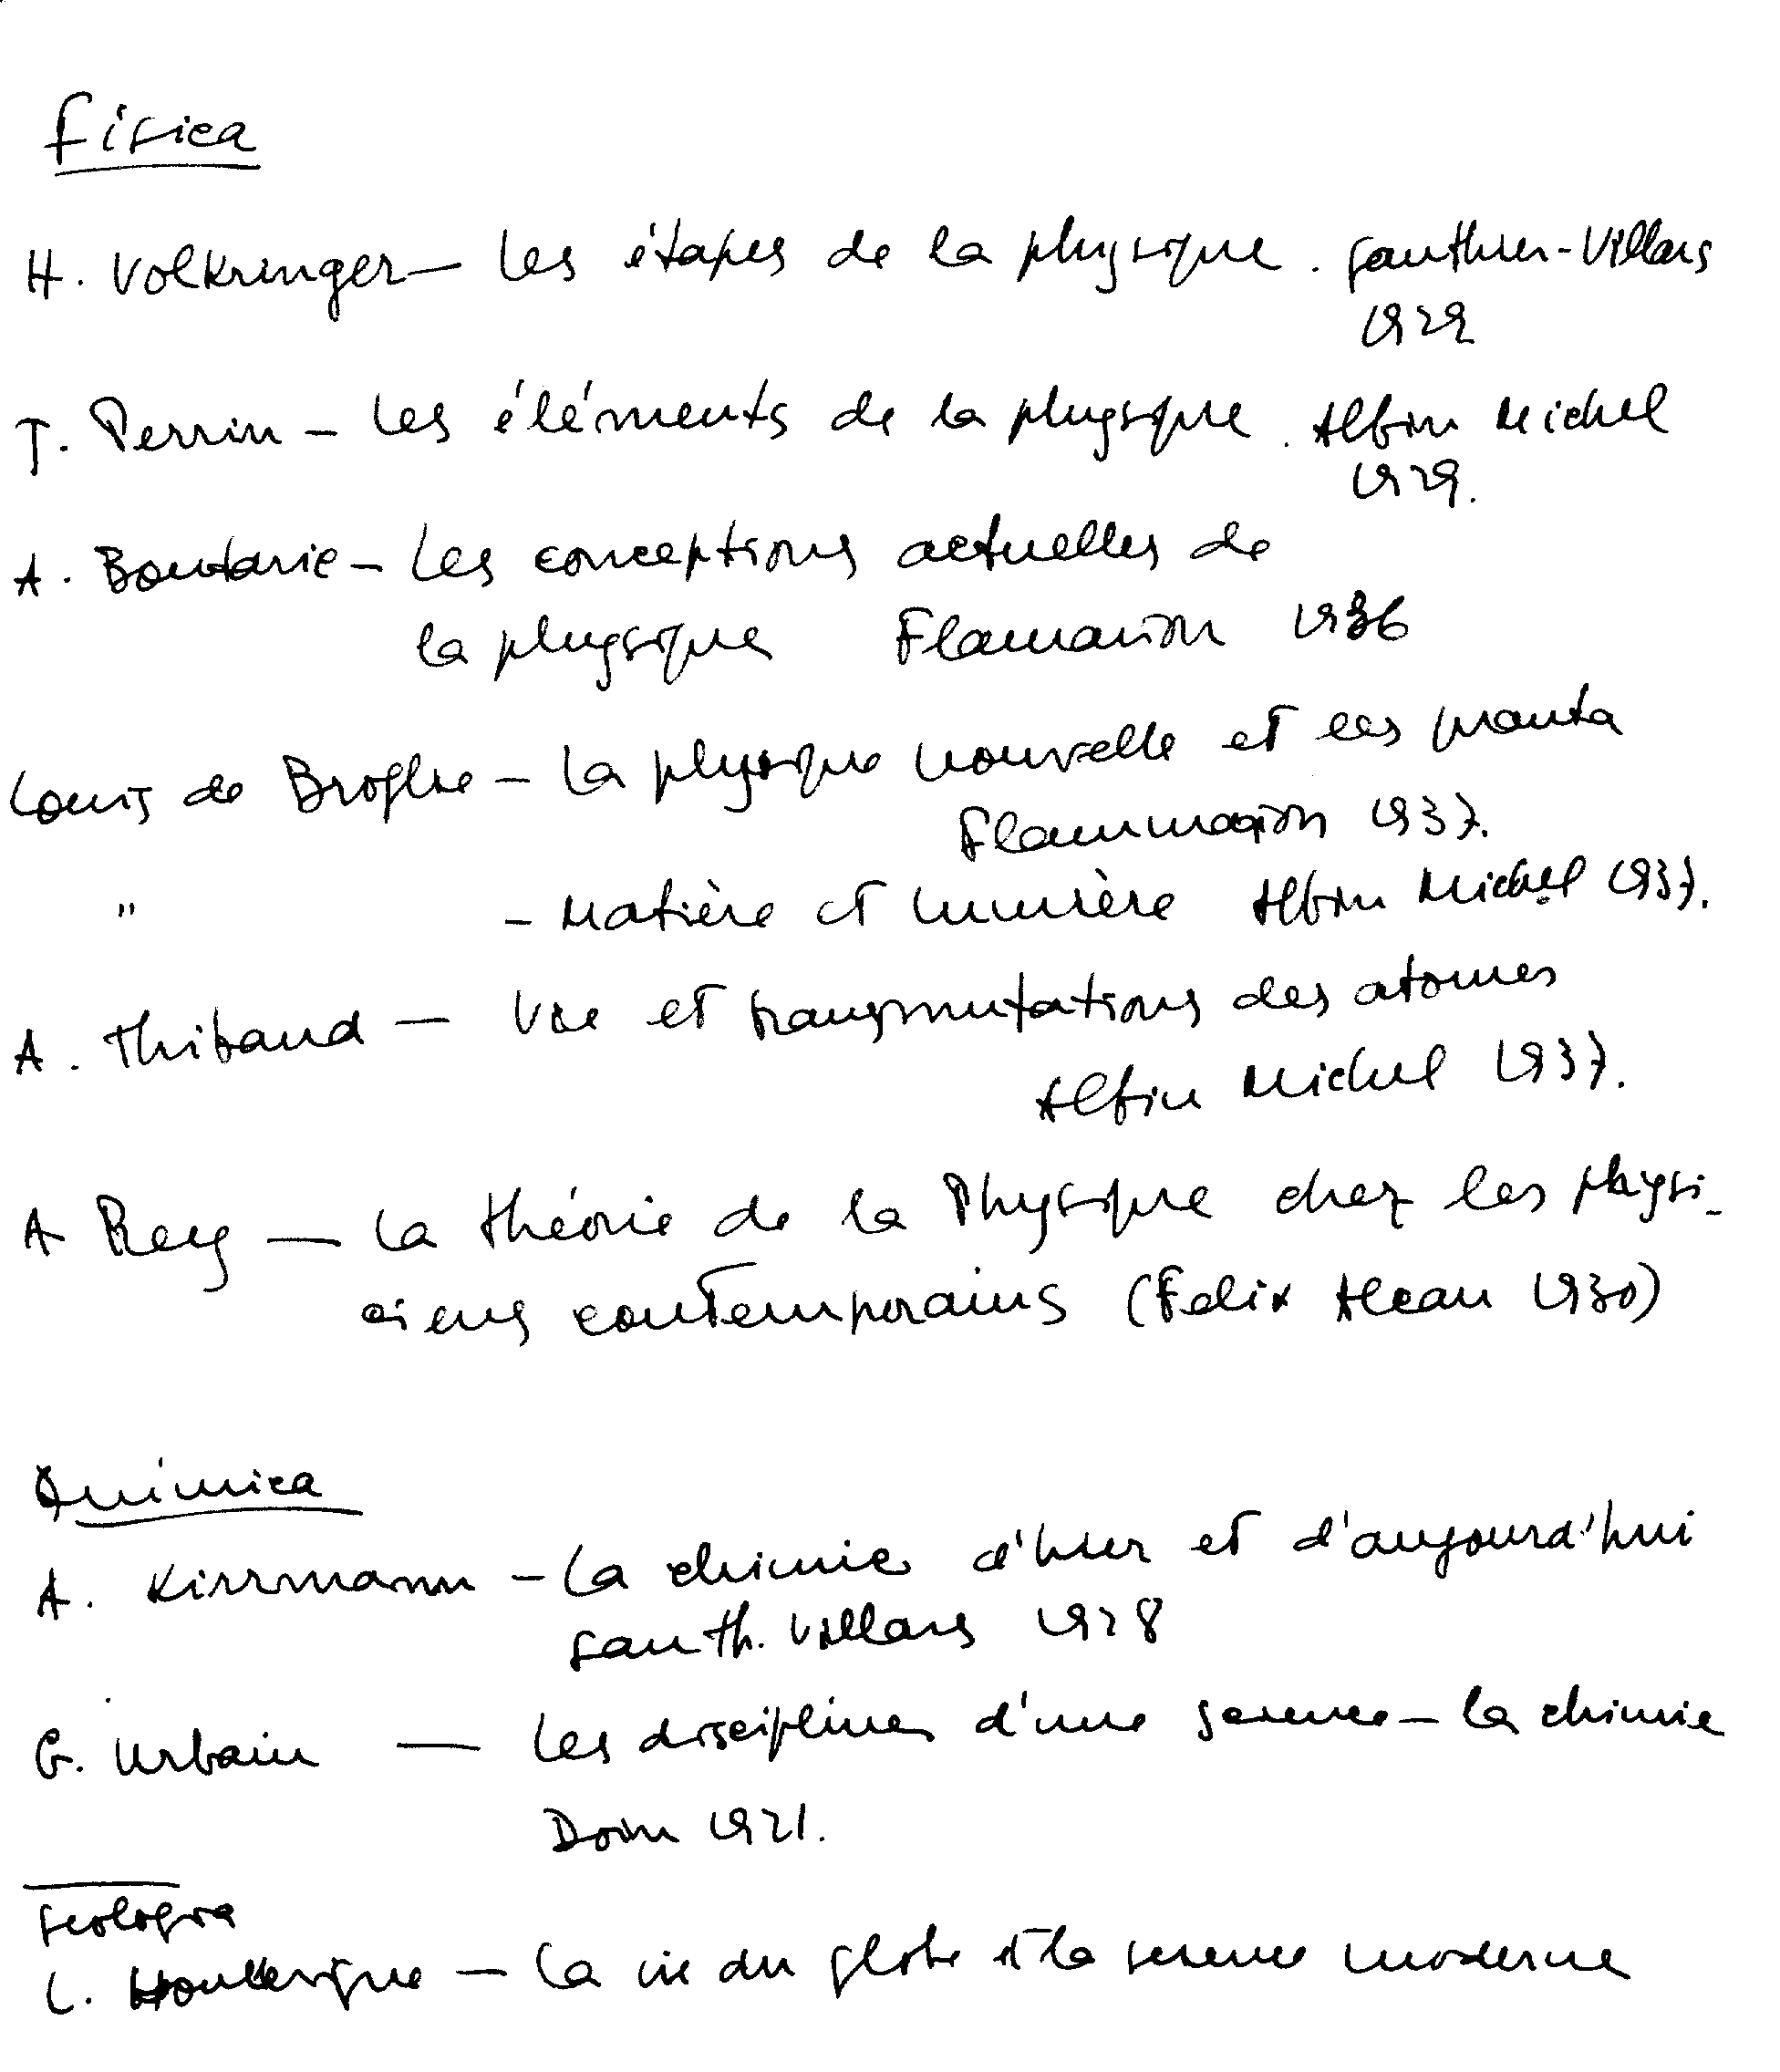 Física
H. Volkringer — Les étapes de la physique. Gauthier-Villars
1929
J. Perrin — Les éléments de la physique. Albin Michel
1929.
A. Boutaric — Les conceptions actuelles de
la physique Flamarion 1936
Louis de Broglie — La physique nouvelle et les quanta
Flammarion 1937.
" — Matière et lumière Albin Michel 1937.
A. Thibaud — Vie et transmutations des atomes
Albin Michel 1937.
A Rey — La théorie de la Physique chez les physi-
ciens contemporains (Felix Alcan 1930)
Química
A. Kirrmann — La chimie d'hier et d'aujourd'hui
Gauth. Villars 1928
G. Urbain — Les disciplines d'une science — la chimie
Doin 1921.
Geologia
L. Houllevigue — La vie du globe et la science moderne